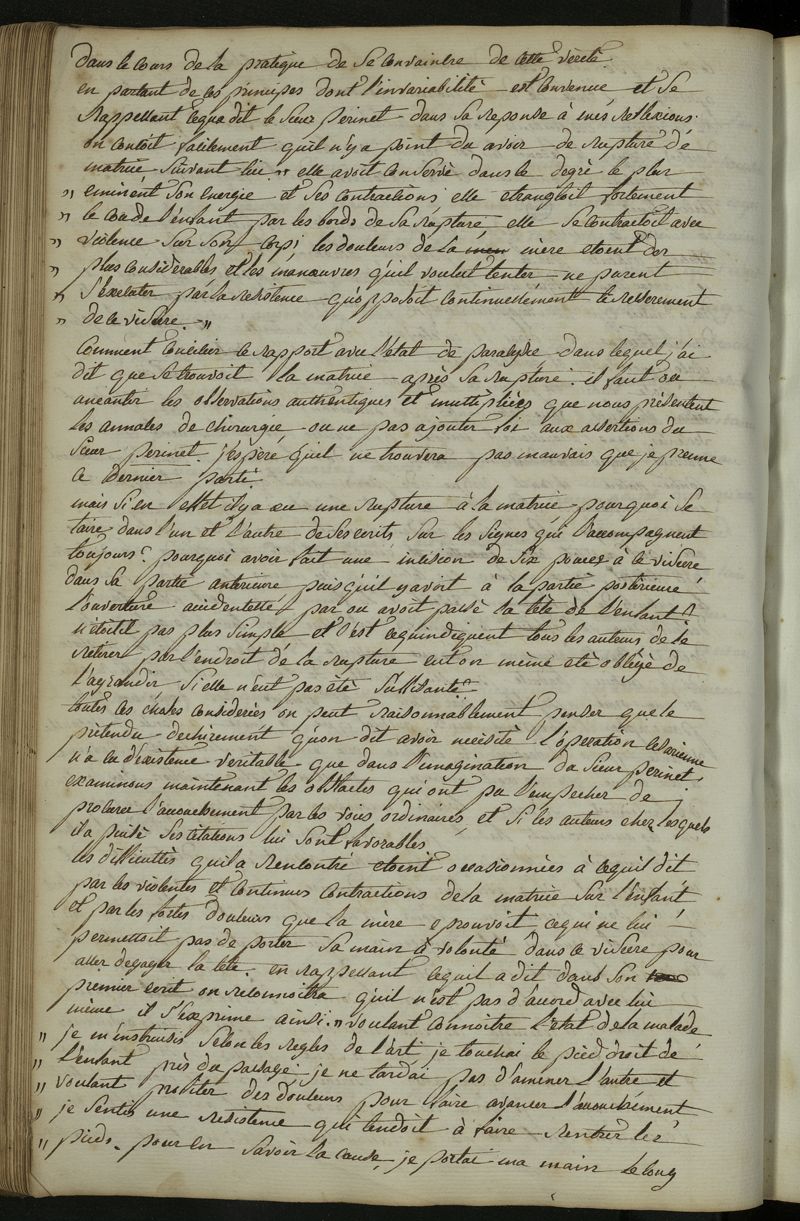 dans le cours de la pratique de se convaincre de cette verité
en partant de ces principes dont l'invariabilité est convenue et se
Rappellant ce qua dit le Sieur perinet dans sa reponse à mes reflexions.
on concoit facilement qu'il n'y a point du avoir de rupture de
matrice suivant lui " elle avoit conservé dans le degré le plus
" eminent son energie et ses contractions, elle etrangloit fortement
" le cou de l'enfant par les bords de sa rupture, elle se contractoit avec
" violence sur son corps les douleurs de la mere etoient des
" plus considerables et les manœuvres qu'il voulut tenter ne purent
" s'executer par la resistence qu'opposoit continuellement le resserrement
" de ce viscere. "
Comment concilier ce rapport avec l'etat de paralysie dans lequel j'ai
dit que se trouvoit la matrice après sa rupture. il faut ou
aneantir les observations authentiques et multipliées que nous présentent
les annales de chirurgie ou ne pas ajouter foi aux assertions du
Sieur perinet. j'espére qu'il ne trouvera pas mauvais que je prenne
ce dernier parti.
mais si en effet il y a eu une rupture à la matrice pourquoi se
taire dans l'un et l'autre de ses ecrits sur les signes qui l'accompagnent
toujours? pourquoi avoir fait une incision de six pouces à ce viscere
dans sa partie anterieure puisqu'il y avoit à la partie posterieure
l'ouverture accidentelle par ou avoit passé la tête de l'enfant?
n'etoit il pas plus simple et c'est ce qu'indiquent tous les auteurs de le
retirer par l'endroit de la rupture eut on même eté obligé de
l'agrandir si elle n'eut pas été suffisante?
toutes ces choses considerées on peut raisonnablement penser que le
prétendu dechirement qu'on dit avoir necissité l'opération cesarienne
n'a eu d'existence veritable que dans l'imagination du Sieur perinet.
examinons maintenant les obstacles qui ont pu l'empecher de
procurer l'accouchement par les voies ordinaires, et si les auteurs chez lesquels
il a puisé ses citations lui sont favorables.
les difficultés qu'il a rencontré etoient occasionnées à ce qu'il dit
par les violentes et continues contractions de la matrice sur l'enfant
et par les fortes douleurs que la mère eprouvoit ce qui ne lui
permettoit pas de porter sa main à volonté dans ce viscere pour
aller degager la tete. en rappellant ce qu'il a dit dans son
premier ecrit on reconnoitra qu'il n'est pas d'accord avec lui
même il s'exprime ainsi. " voulant connoitre l'etat de la malade
" je m'instruisis selon les regles de l'art. je touchai le pied droit de
" l'enfant près du passage. je ne tardai pas d'amener l'autre et
" voulant profiter des douleurs pour faire avancer l'accouchement
" je sentis une resistence qui tendoit à faire rentrer les
" pieds. pour en savoir la cause, je portai ma main le long